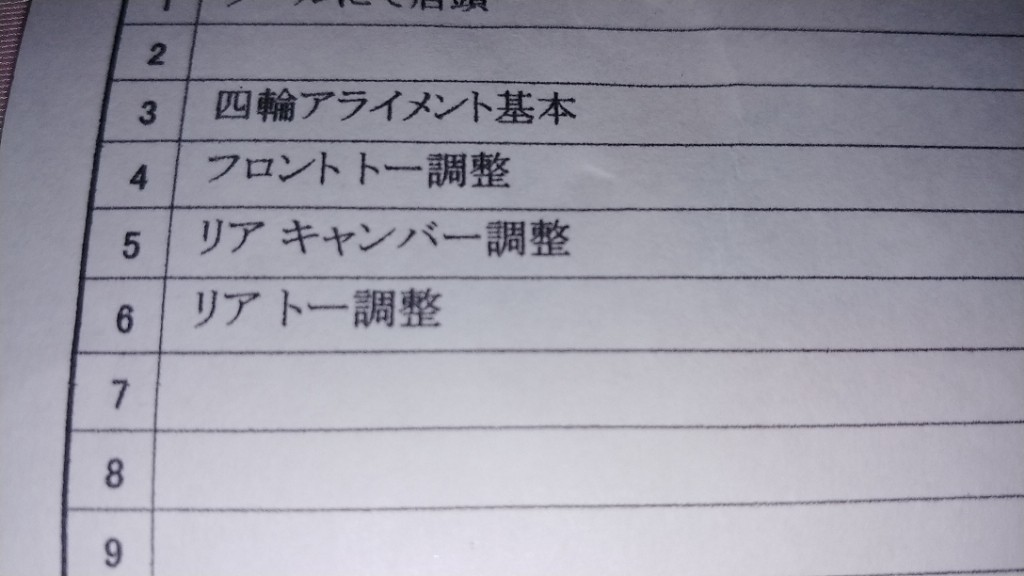 2
3 四輪アライメント基本
4 フロント トー調整
5 リア キャンバー調整
6 リア トー調整
7
8
9